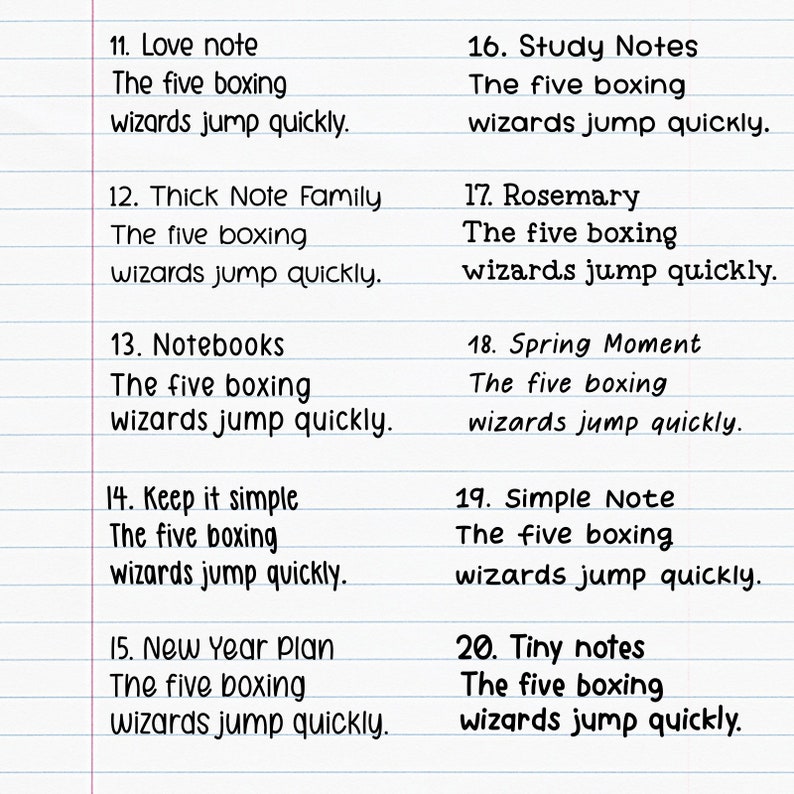 11. Love note
The five boxing
wizards jump quickly.
12. Thick Note Family
The five boxing
wizards jump quickly.
13. Notebooks
The five boxing
wizards jump quickly.
14. Keep it simple
The five boxing
wizards jump quickly.
15. New Year Plan
The five boxing
wizards jump quickly.
16. Study Notes
The five boxing
wizards jump quickly.
17. Rosemary
The five boxing
wizards jump quickly.
18. Spring Moment
The five boxing
wizards jump quickly.
19. Simple Note
The five boxing
wizards jump quickly.
20. Tiny notes
The five boxing
wizards jump quickly.